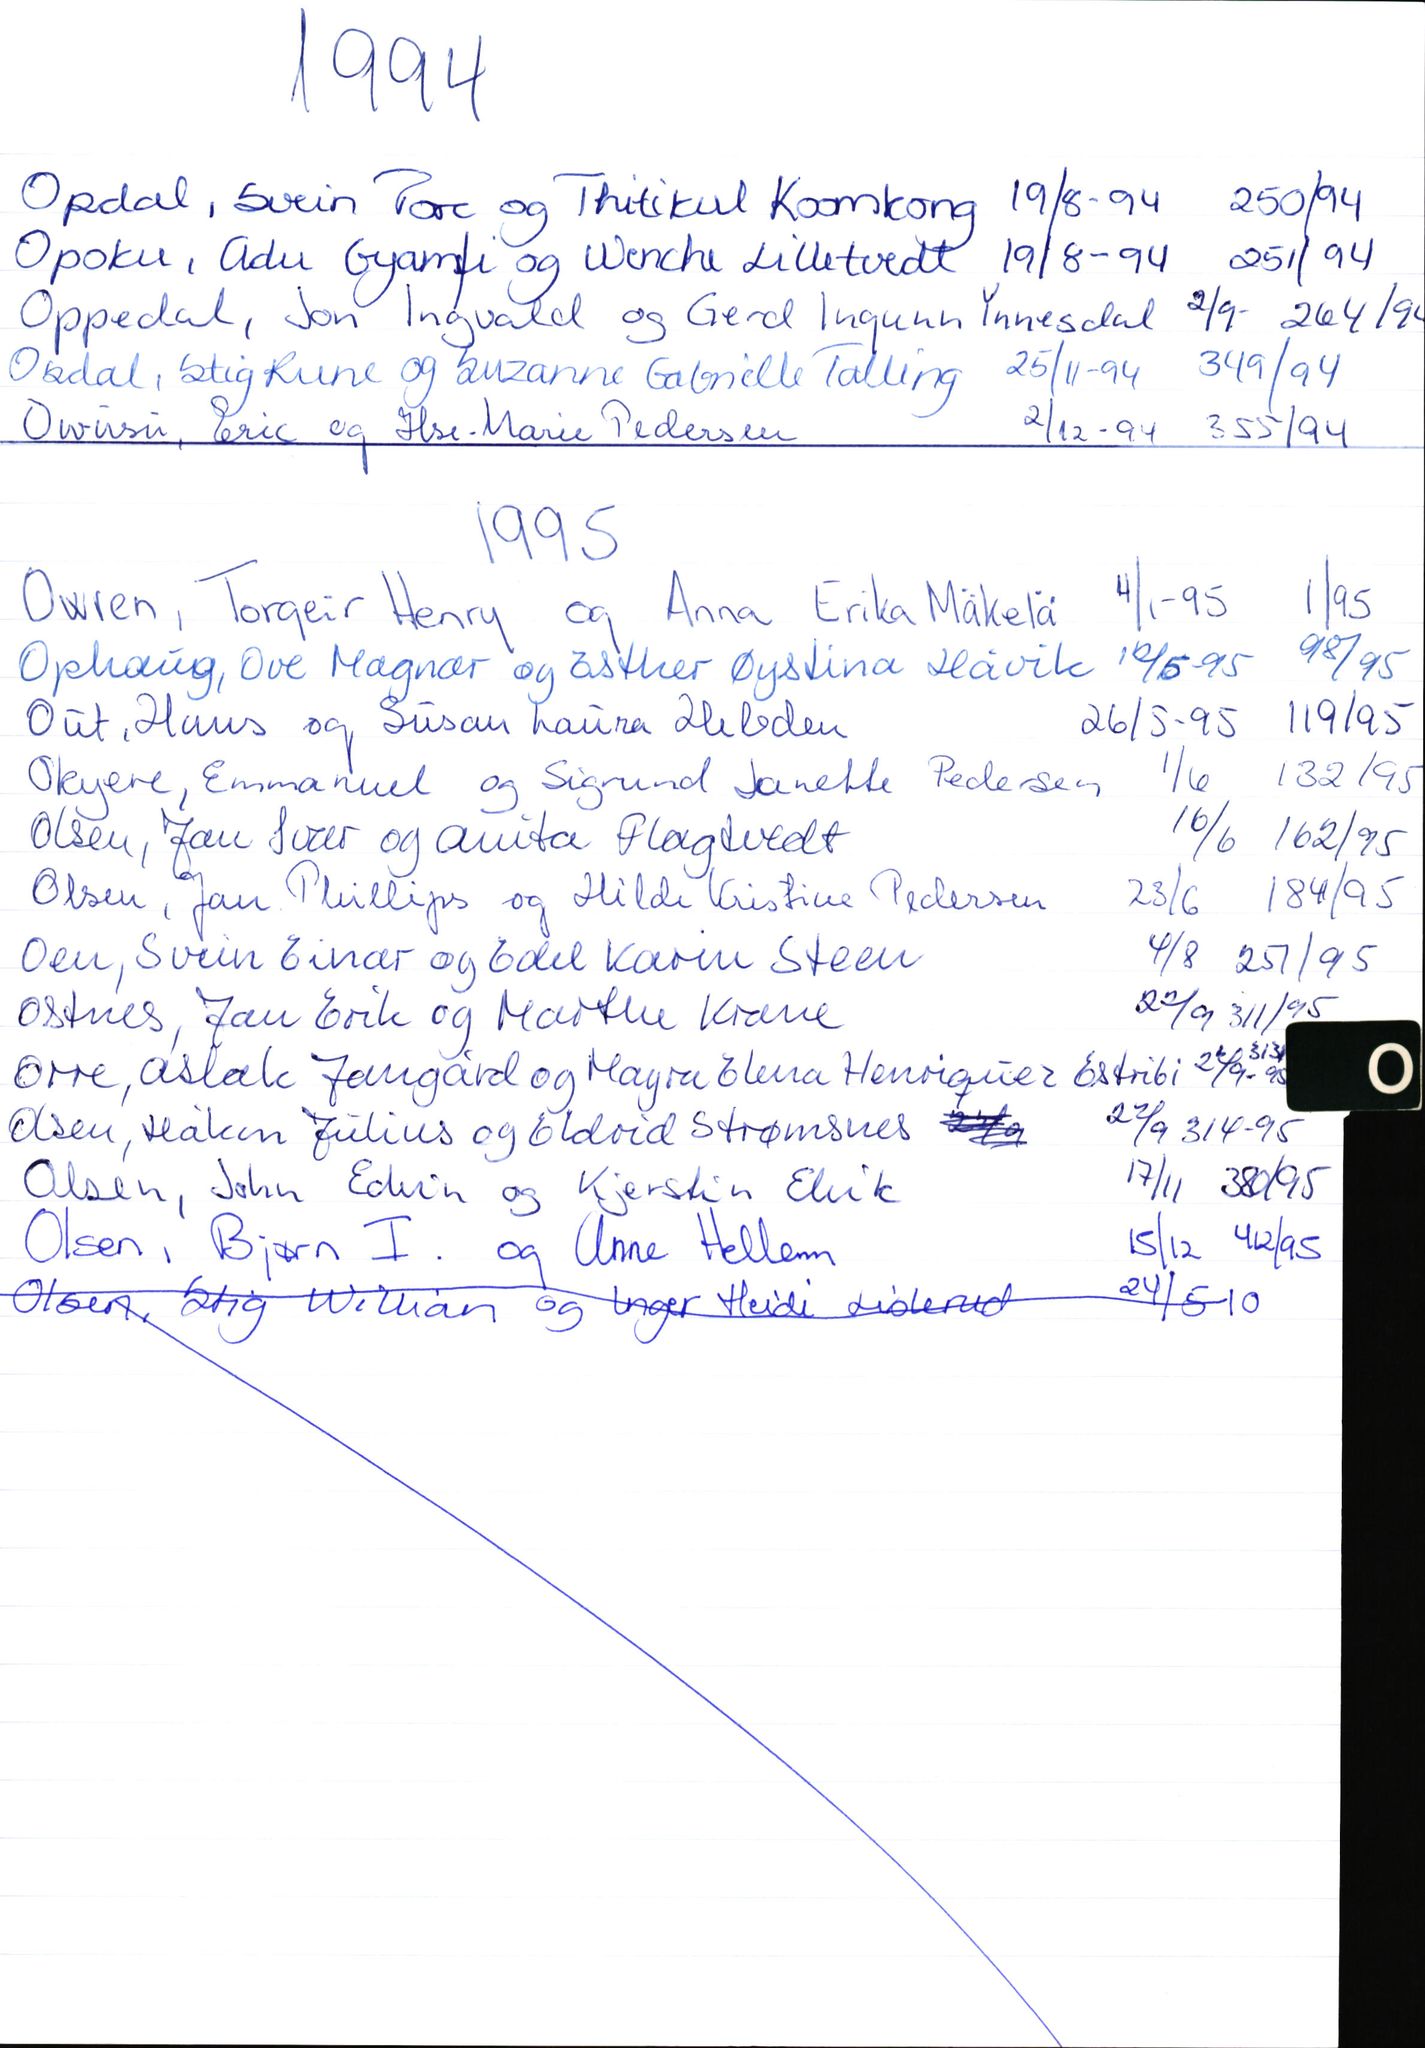 1994
Opdal, Svein Tore og Thitikul Koomkong 19/8-94 250/94
Opoku, Adu Gyamfi og Wenche Lilletvedt 19/8-94 251/94
Oppedal, Jon Ingvald og Gerd Ingunn Ynnesdal 2/9- 264/94
Opdal, Stig Rune og Suzanne Gabrielle Talling 25/11-94 349/94
Owusu, Eric og Ilse-Marie Pedersen 2/12-94 355/94
1995
Owren, Torgeir Henry og Anna Erika Mäkelä 4/1-95 1/95
Ophaug, Ove Magnar og Esther Øystina Håvik 12/5-95 98/95
Out, Hans og Susan Laura Hebden 26/5-95 119/95
Okyere, Emmanuel og Sigrund Janette Pedersen 1/6 132/95
Olsen, Jan Ivar og Anita Flagtvedt 16/6 162/95
Olsen, Jan Phillips og Hilde Kristine Pedersen 23/6 184/95
Oen, Svein Einar og Edel Karin Steen 4/8 257/95
Ostnes, Jan Erik og Marthe Krane 22/9 311/95
Orre, Aslak Jangård og Mayra Elena Henriquez Estribi 313 -95
O
Olsen, Håkon Julius og Eldrid Strømsnes 22/9 314-95
Olsen, John Edvin og Kjerstin Elvik 17/11 380/95
Olsen, Bjørn I. og Anne Hellem 15/12 412/95
Olsen, Stig William og Inger Heidi Liderud 24/5-10